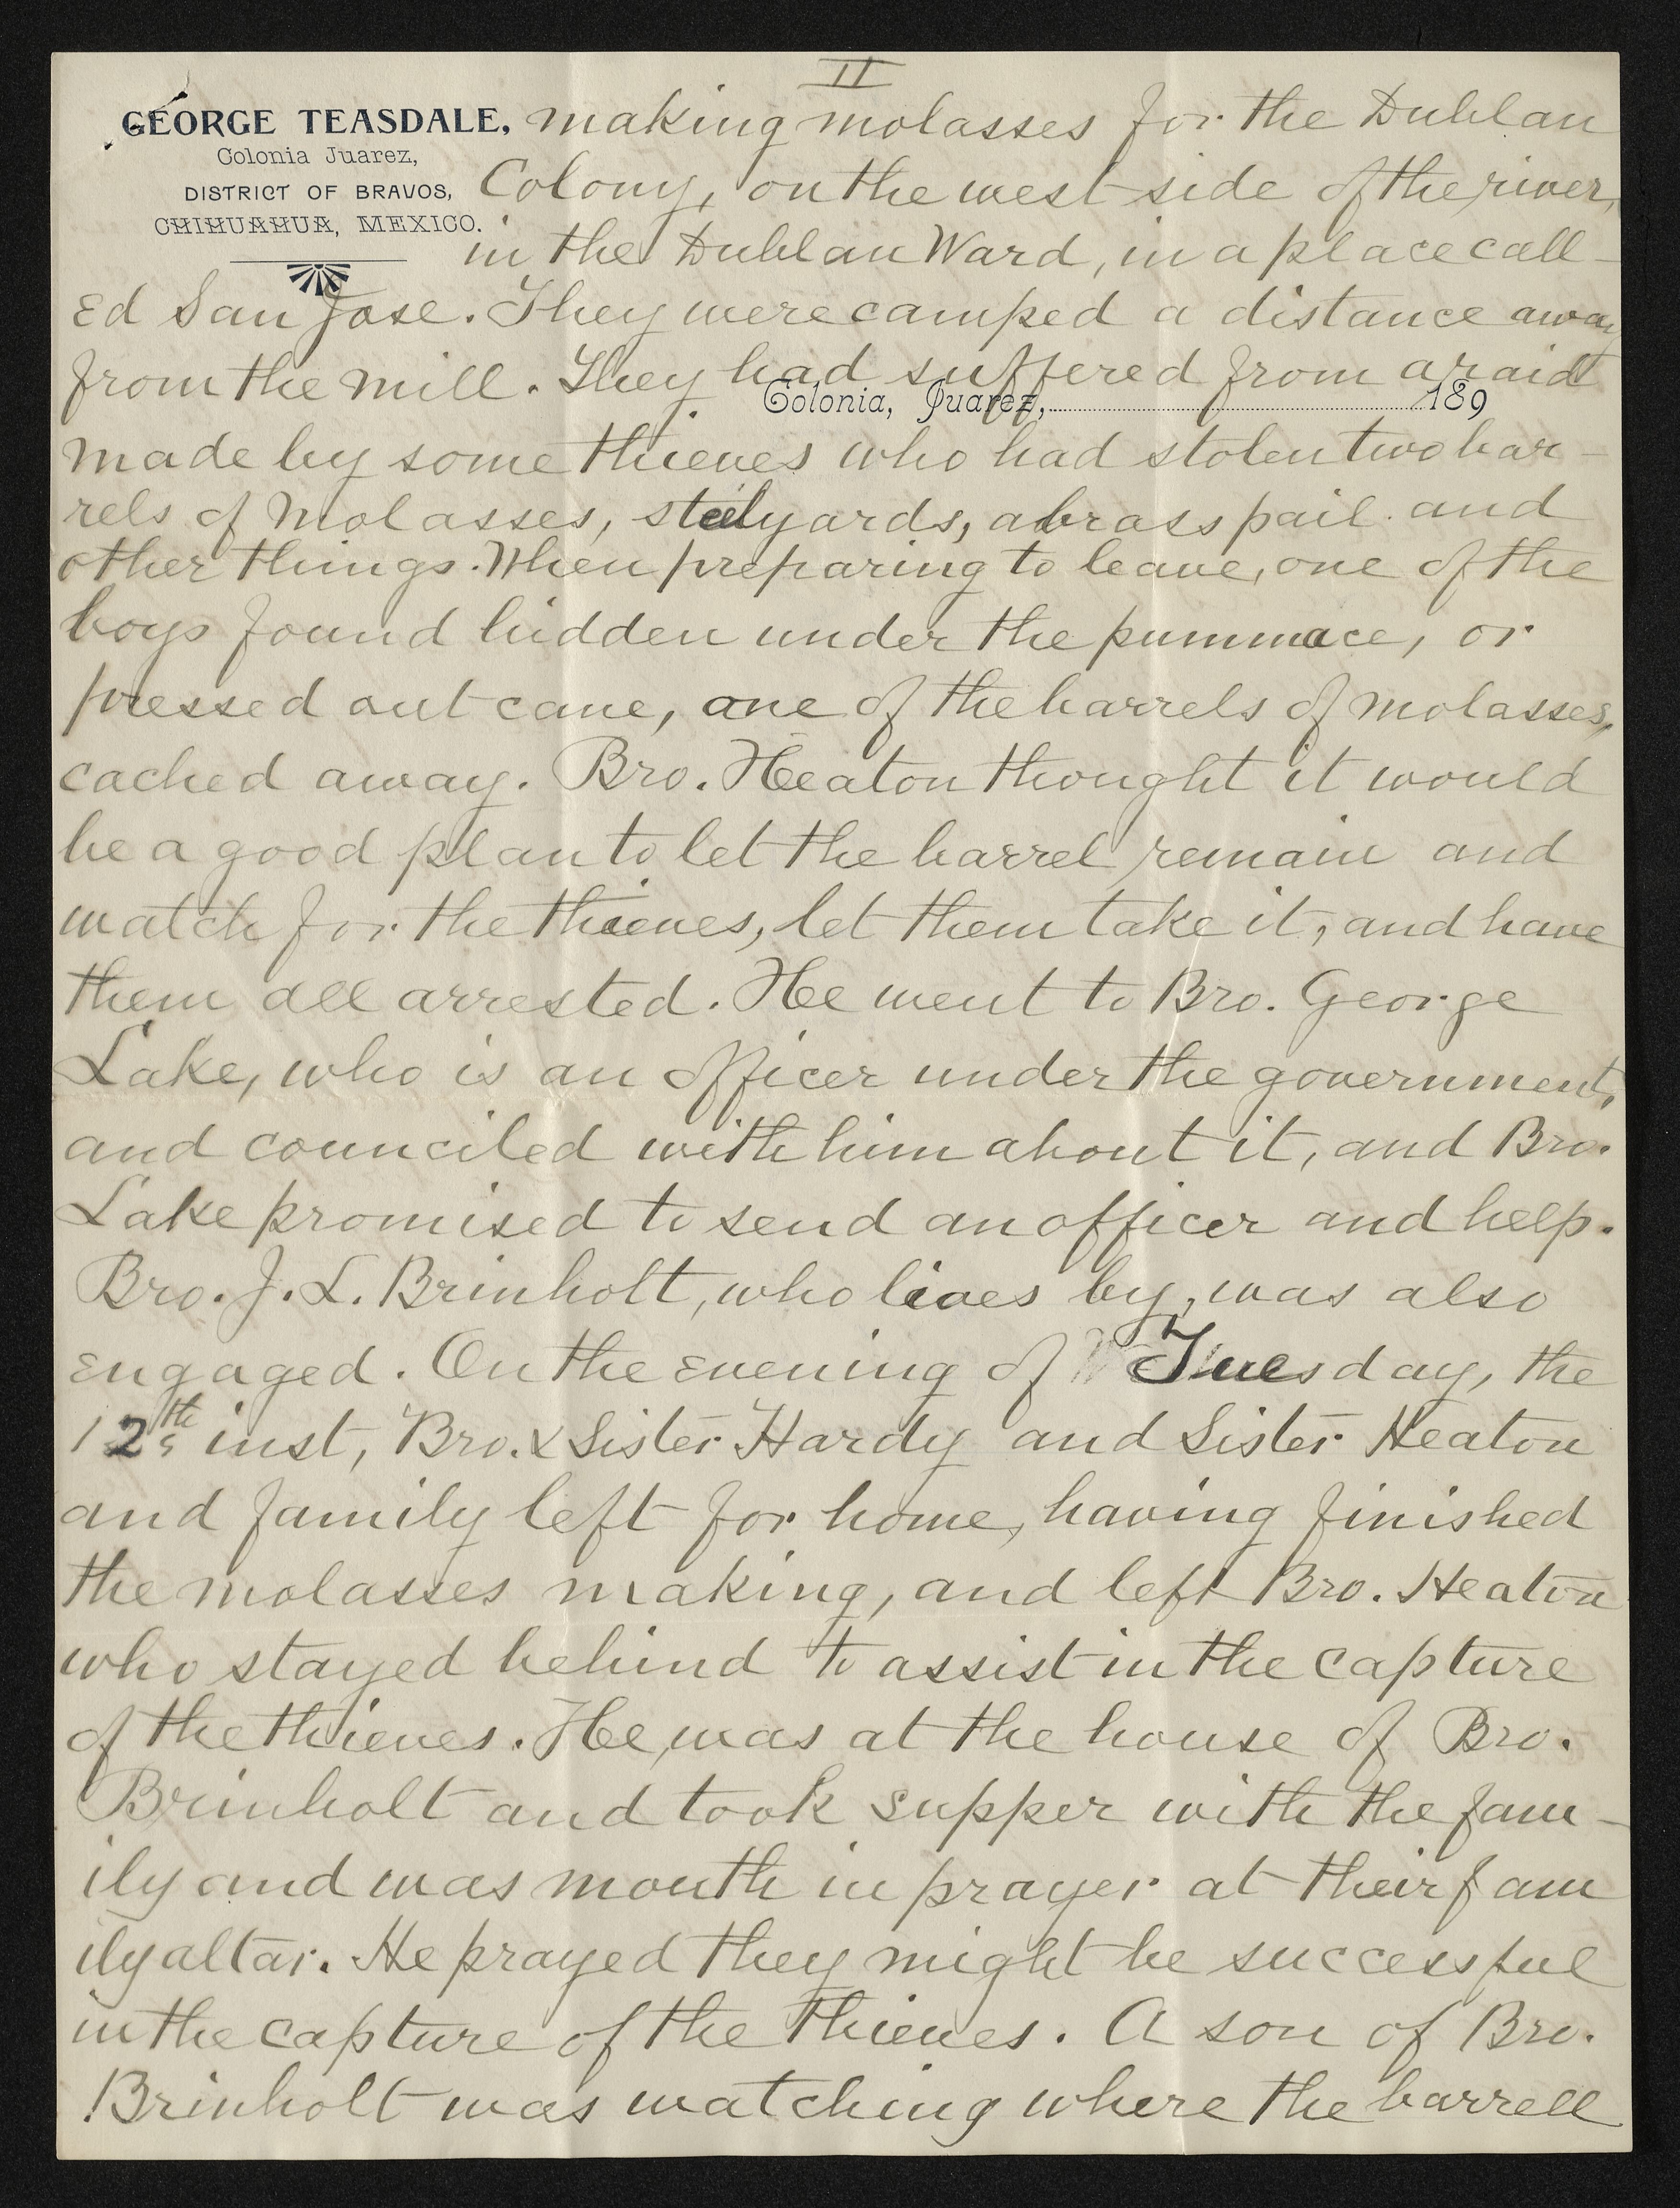 II
GEORGE TEASDALE, making molasses for the Dublan
Colonia Juarez,
DISTRICT OF BRAVOS, Colony, on the west side of the river,
CHIHUAHUA, MEXICO.
in the Dublan Ward, in a place call-
ed San Jose. They were camped a distance away
from the mill. They had suffered from a raid
Colonia, Juarez, 189
made by some thieves who had stolen two bar-
rels of molasses, steelyards, a brass pail and
other things. When preparing to leave, one of the
boys found hidden under the pummace, or
pressed out cane, one of the barrels of molasses,
cached away. Bro. Heaton thought it would
be a good plan to let the barrel remain and
watch for the thieves, let them take it, and have
them all arrested. He went to Bro. George
Lake, who is an officer under the government,
and counciled with him about it, and Bro.
Lake promised to send an officer and help.
Bro. J. L. Brinholt, who lives by, was also
engaged. On the evening of Tuesday, the
12th inst, Bro. & Sister Hardy and Sister Heaton
and family left for home, having finished
the molasses making, and left Bro. Heaton
who stayed behind to assist in the capture
of the thieves. He was at the house of Bro.
Brinholt and took supper with the fam-
ily and was mouth in prayer at their fam
ily altar. He prayed they might be successful
in the capture of the thieves. A son of Bro.
Brinholt was watching where the barrell